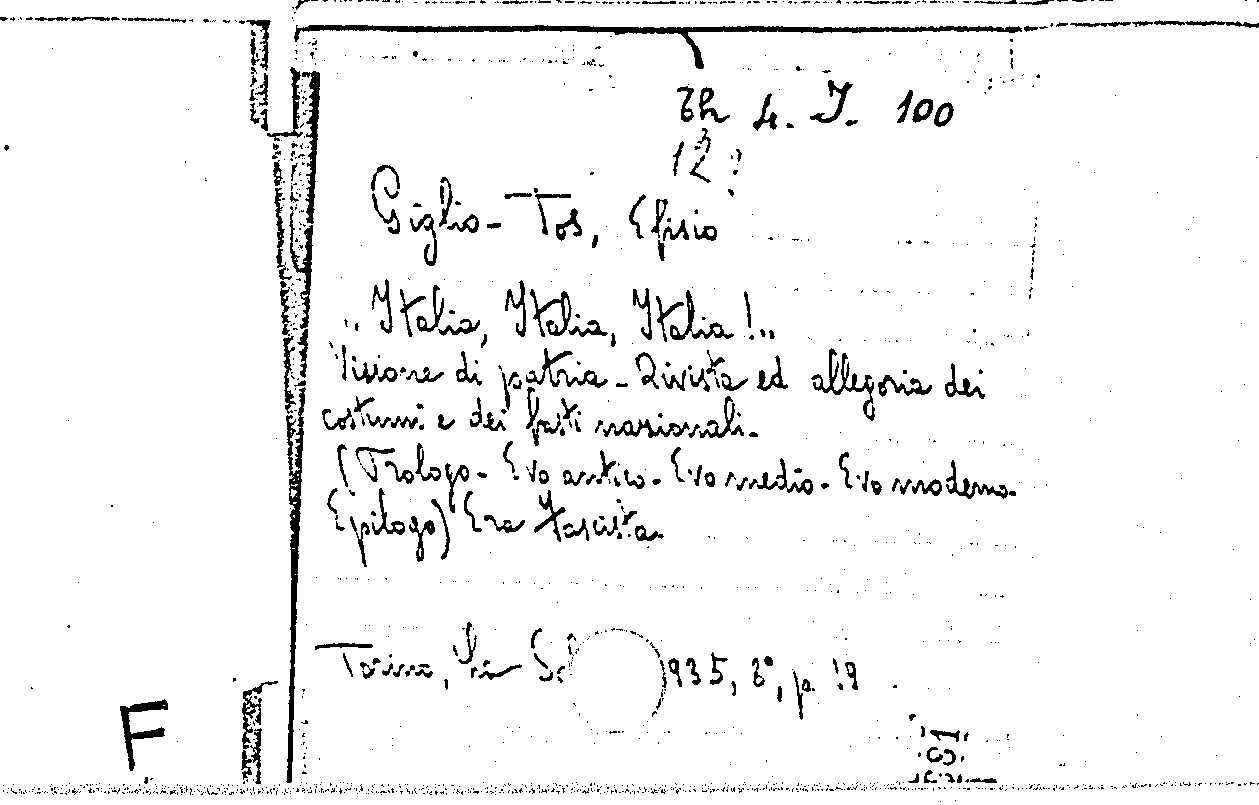 Th 4. I. 100
12?
Giglio-Tos, Efisio
"Italia, Italia, Italia!"
Visione di patria - Rivista ed allegoria dei
costumi e dei fasti nazionali.
(Prologo - Evo antico - Evo medio - Evo moderno
Epilogo) Era Fascista.
Torino, 935, 8°, p. 19
F